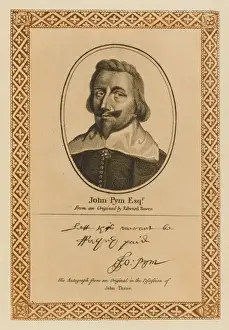 John Pym Esqr.
From an Original by Edward Bower
Lett this warrant be
Jo: Pym
His Autograph from an Original in the Possession of
John Thane